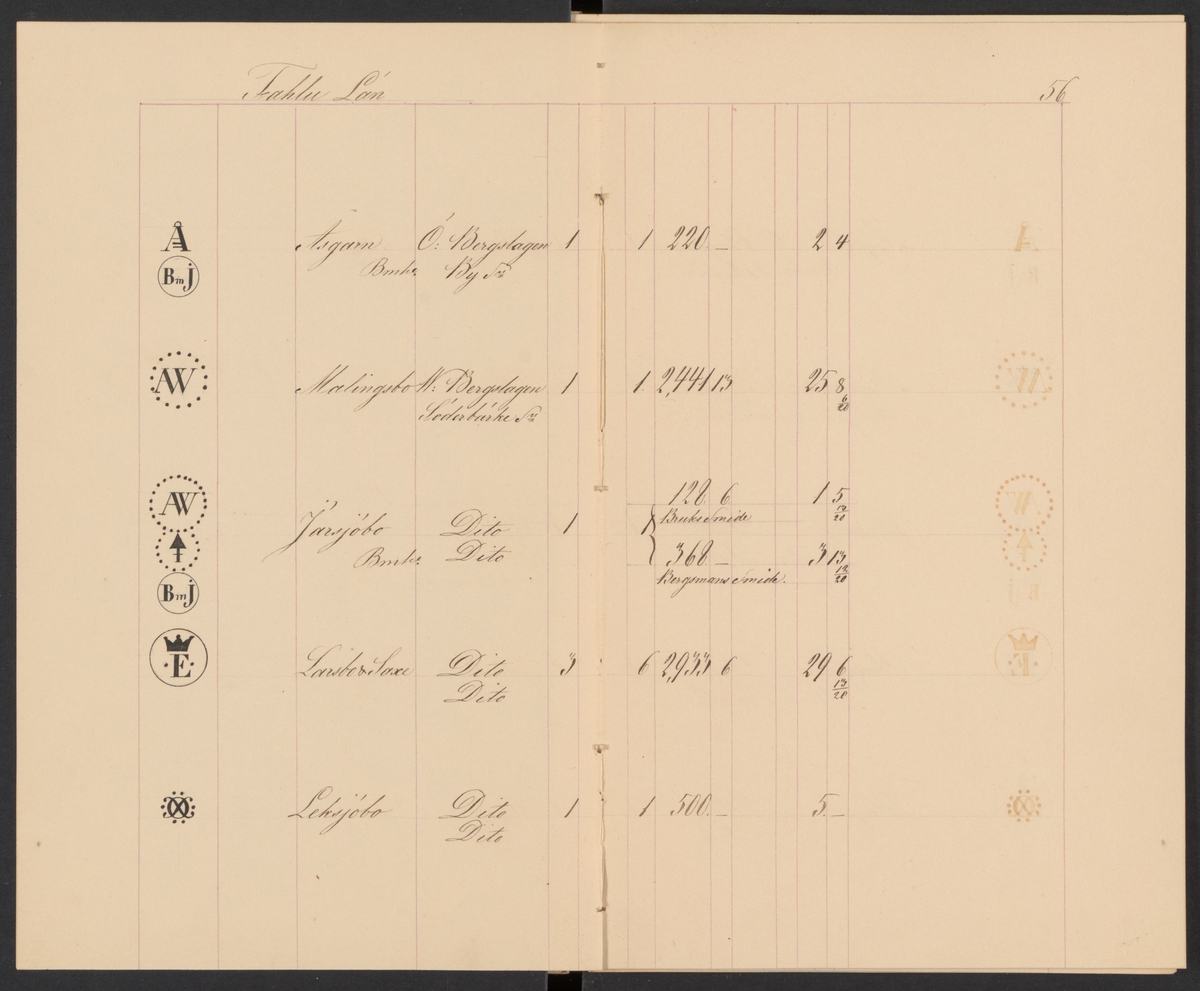 Fahlu Län 56
Å Åsgarn Ö: Bergslagen 1 1 220 — 2 4
BmJ Bmks By Sn
AW Malingsbo W: Bergslagen 1 1 2,441 13 25 8 6/20
Söderbärke Sn
128 6 1 5 12/20
AW Järsjöbo Dito 1 1 Bruks Smide
Bmks Dito 368 — 3 13 12/20
BmJ Bergsmans Smide.
E Larsbo & Saxe Dito 3 6 2,933 6 29 6 13/20
Dito
Leksjöbo Dito 1 1 500 — 5 —
Dito